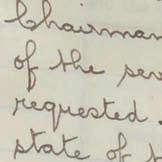 Chairman
of the
requested.
state of